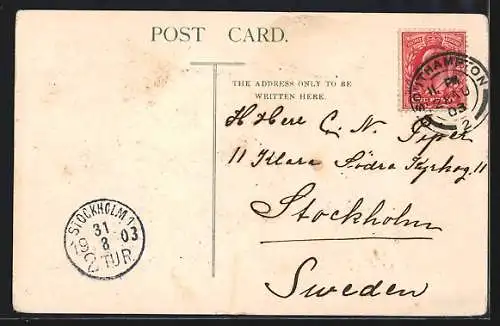 POST CARD.
THE ADDRESS ONLY TO BE
WRITTEN HERE.
SOUTHAMPTON
03
2
H Herr C. N. Piper
11 Klara Södra Kyrkog. 11
Stockholm
Sweden
STOCKHOLM 1
31
8 03
190 TUR.